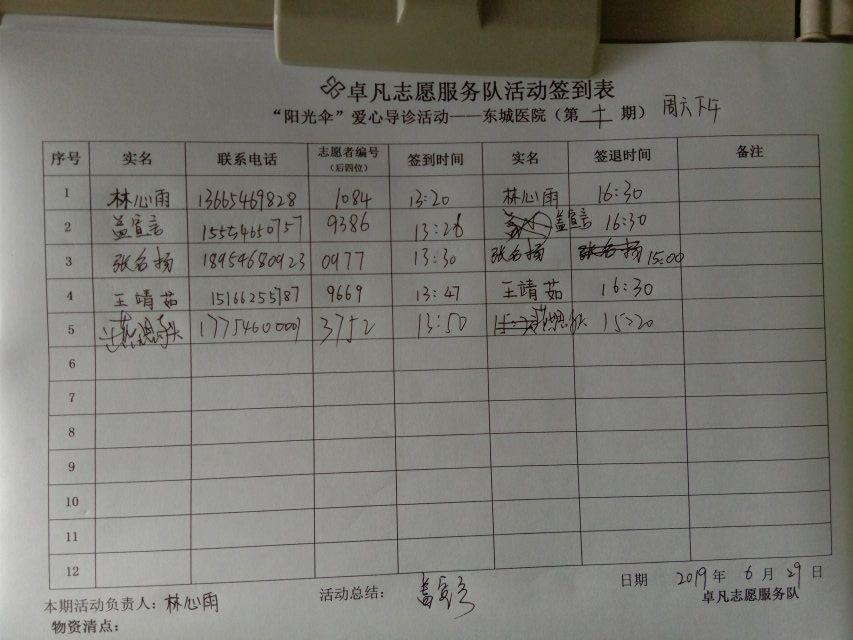 卓凡志愿服务队活动签到表
“阳光伞”爱心导诊活动——东城医院（第十期）周六下午
序号 实名 联系电话 志愿者编号（后四位） 签到时间 实名 签退时间 备注
1 林心雨 13665469828 1084 13:20 林心雨 16:30
2 盖宣言 15554650757 9386 13:26 盖宣言 16:30
3 张名扬 18954680923 0977 13:30 张名扬 15:00
4 王靖茹 15166255787 9669 13:47 王靖茹 16:30
5 17754600007 3752 13:50 15:20
6
7
8
9
10
11
12
本期活动负责人：林心雨 活动总结：盖宣言 日期 2019年6月29日
物资清点： 卓凡志愿服务队